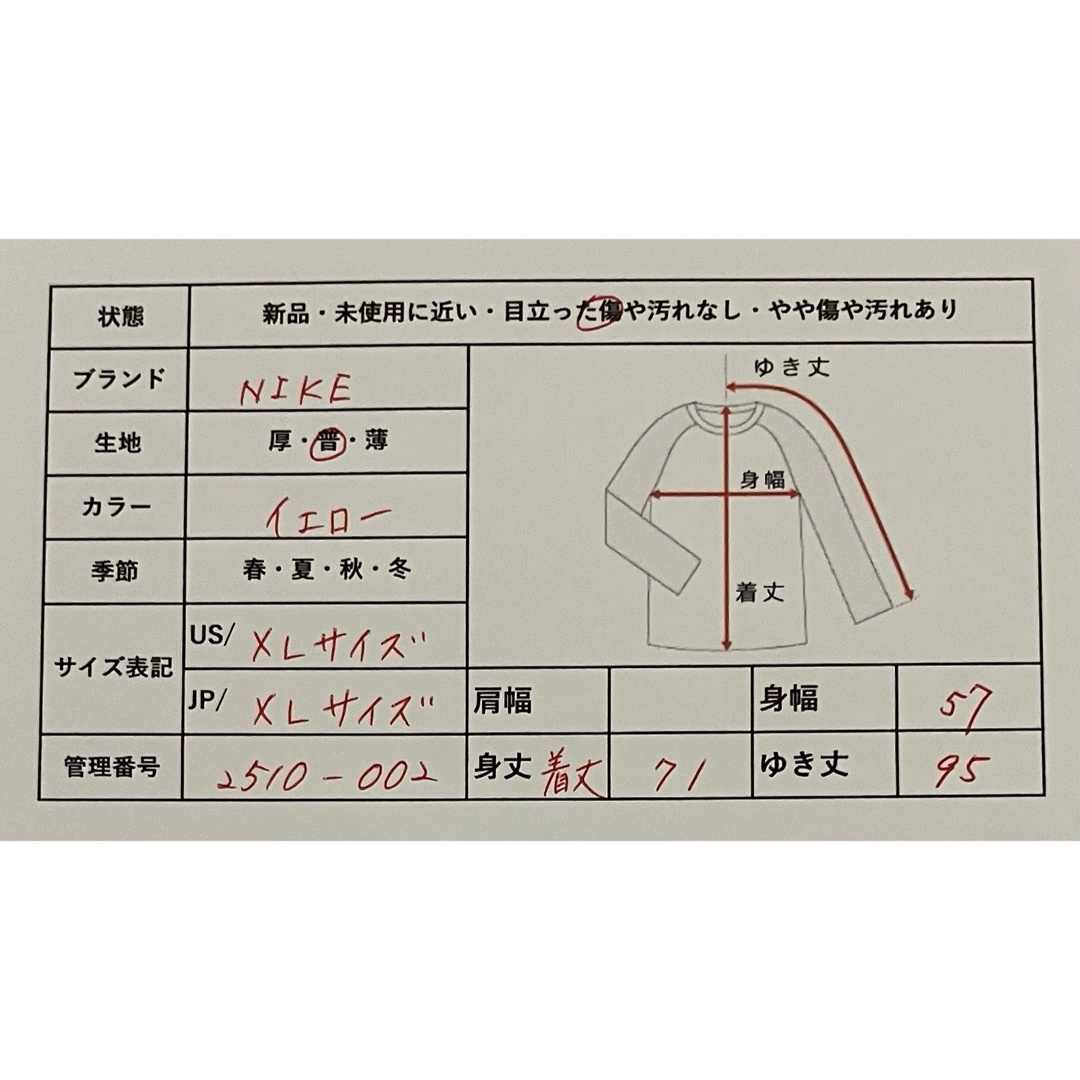 状態 新品・未使用に近い・目立った傷や汚れなし・やや傷や汚れあり
ブランド NIKE
生地 厚・普・薄
カラー イエロー
季節 春・夏・秋・冬
サイズ表記 US/ XLサイズ
JP/ XLサイズ
ゆき丈
身幅
着丈
肩幅 身幅 57
管理番号 2510-002 身丈 着丈 71 ゆき丈 95